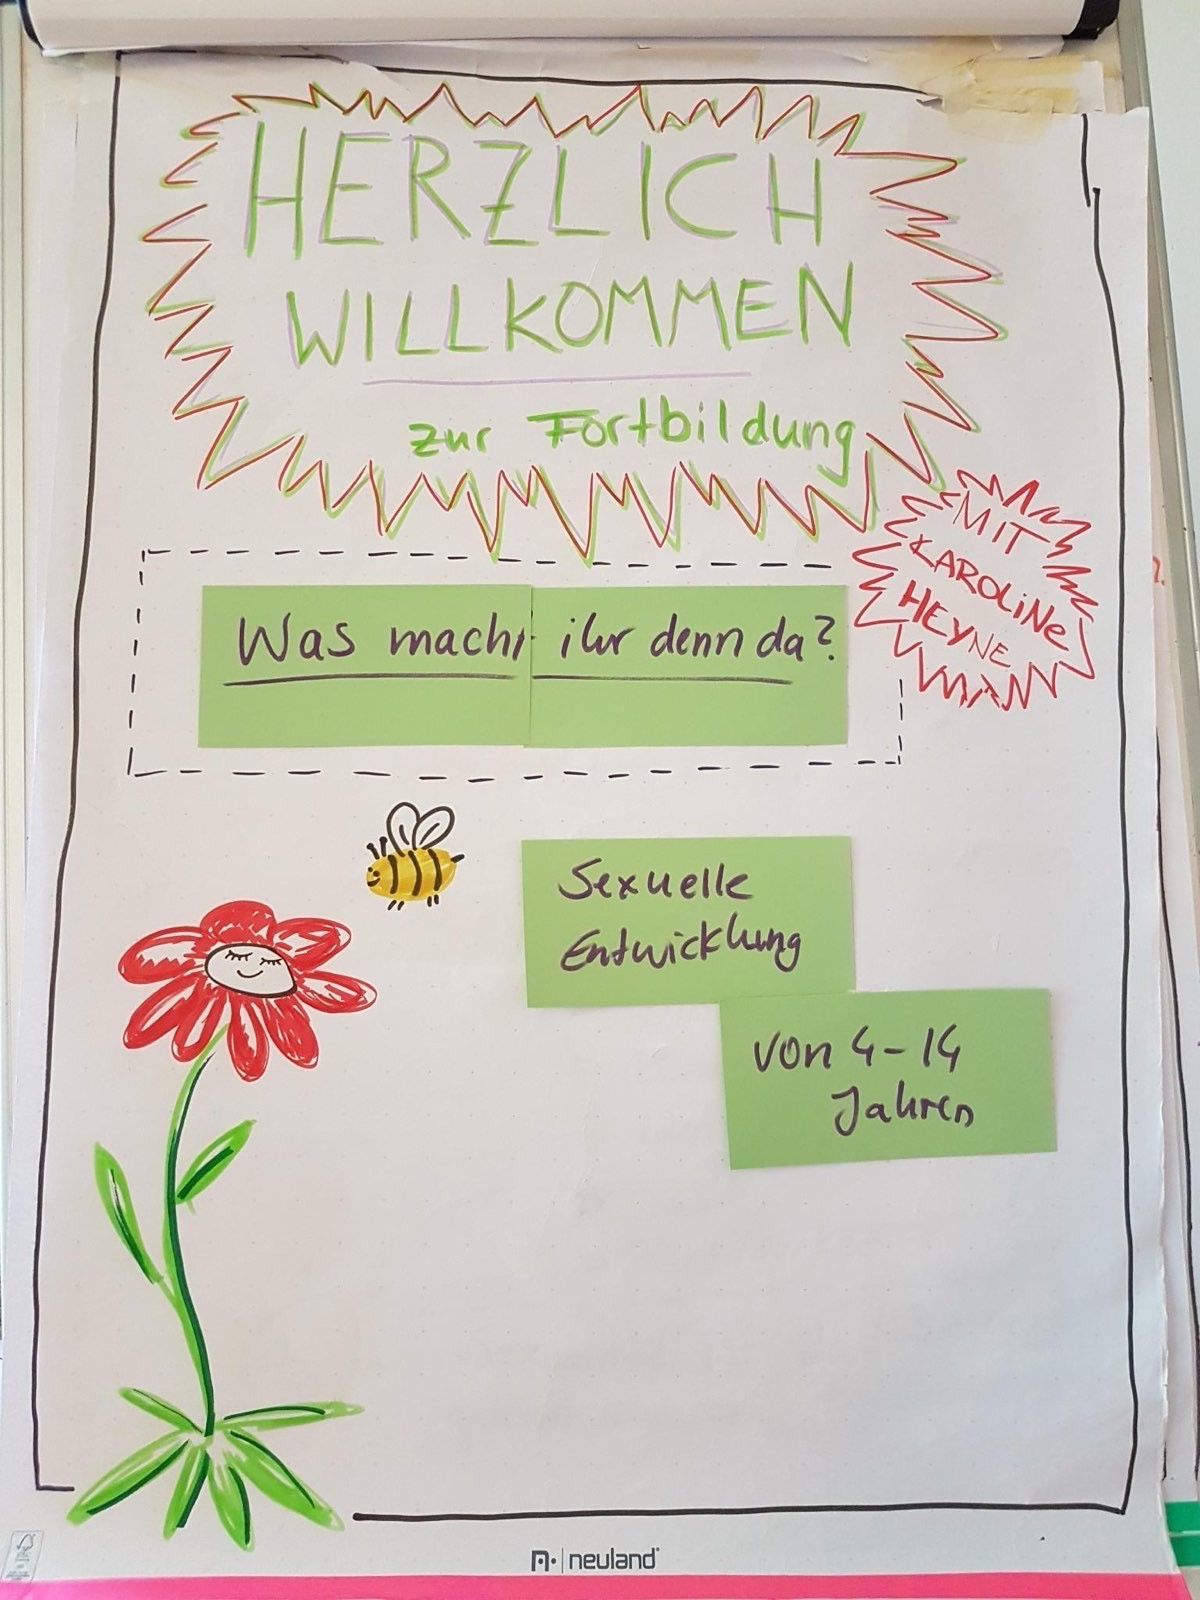 HERZLICH
WILLKOMMEN
zur Fortbildung
MIT
KAROLINE
HEYNE
Was macht ihr denn da?
Sexuelle
Entwicklung
von 4-14
Jahren
neuland